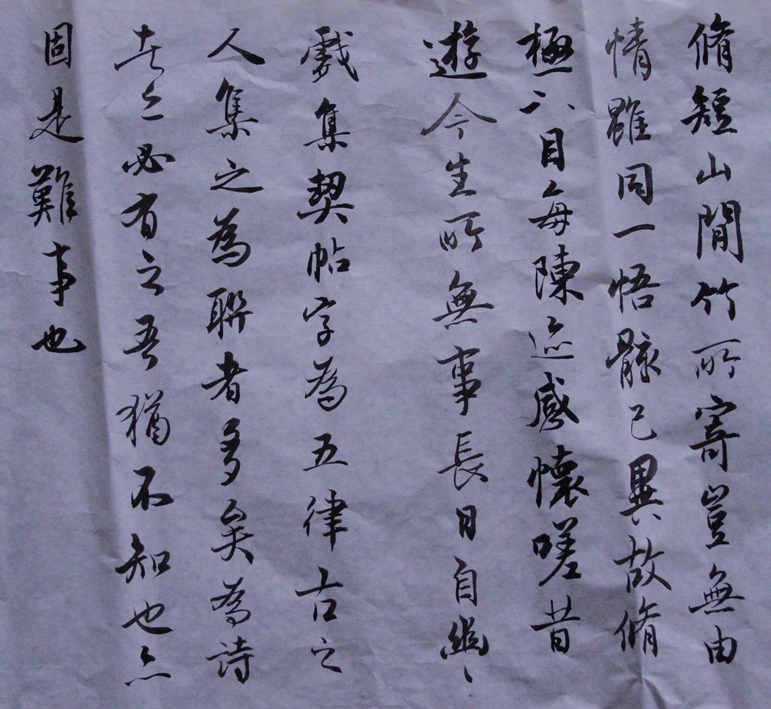 脩短山間竹所寄豈無由
情雖同一悟骸已異故脩
極目每陳迹感懷嗟昔
遊今生所無事長日自幽〻
戲集契帖字為五律古之
人集之為聯者多矣為詩
者必有之吾猶不知也亦
固是難事也